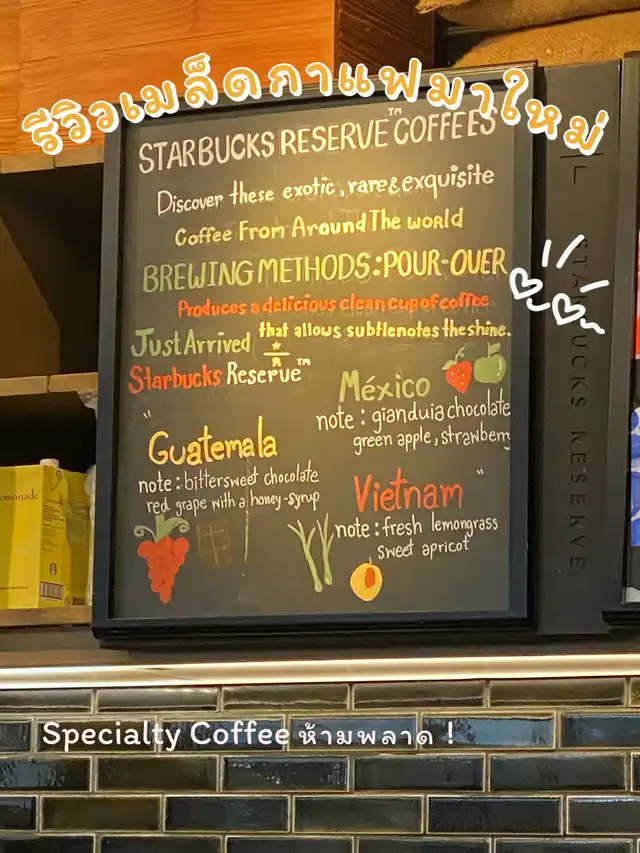 รีวิวเมล็ดกาแฟมาใหม่
STARBUCKS RESERVE™ COFFEES
Discover these exotic, rare & exquisite
Coffee From Around The world
BREWING METHODS: POUR-OVER
Produces a delicious clean cup of coffee
that allows subtle notes the shine.
Just Arrived
Starbucks Reserve™
"
México
note : gianduia chocolate
green apple, strawberry
Guatemala
note : bittersweet chocolate
red grape with a honey-syrup
Vietnam "
note : fresh lemongrass
sweet apricot
STARBUCKS RESERVE
emonade
Specialty Coffee ห้ามพลาด !